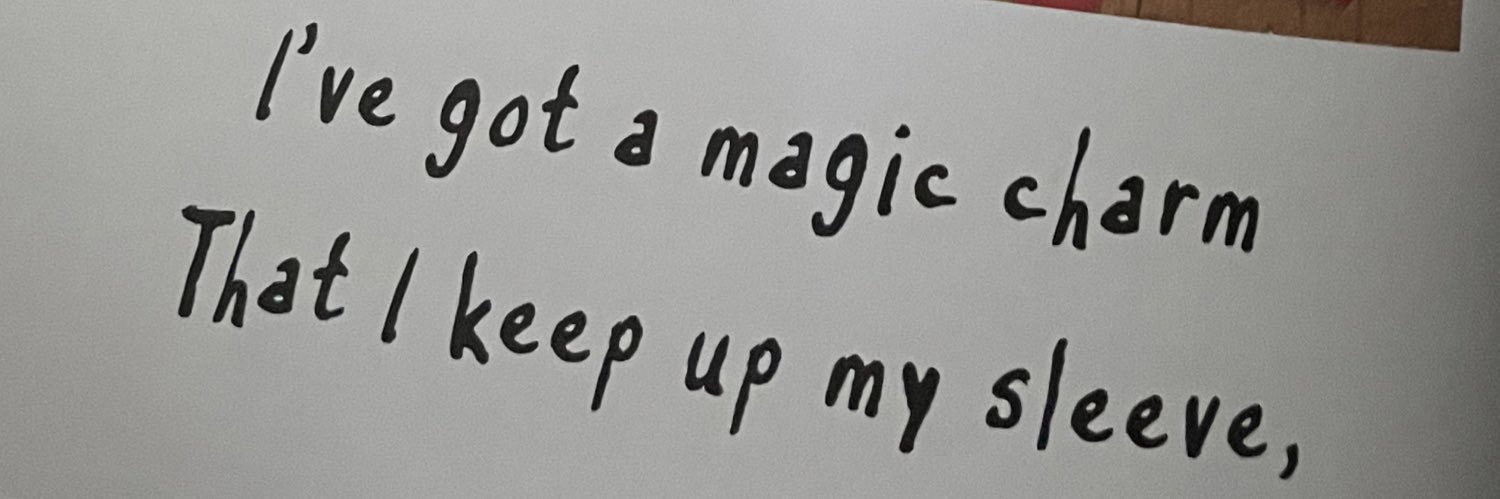 I've got a magic charm
That I keep up my sleeve,